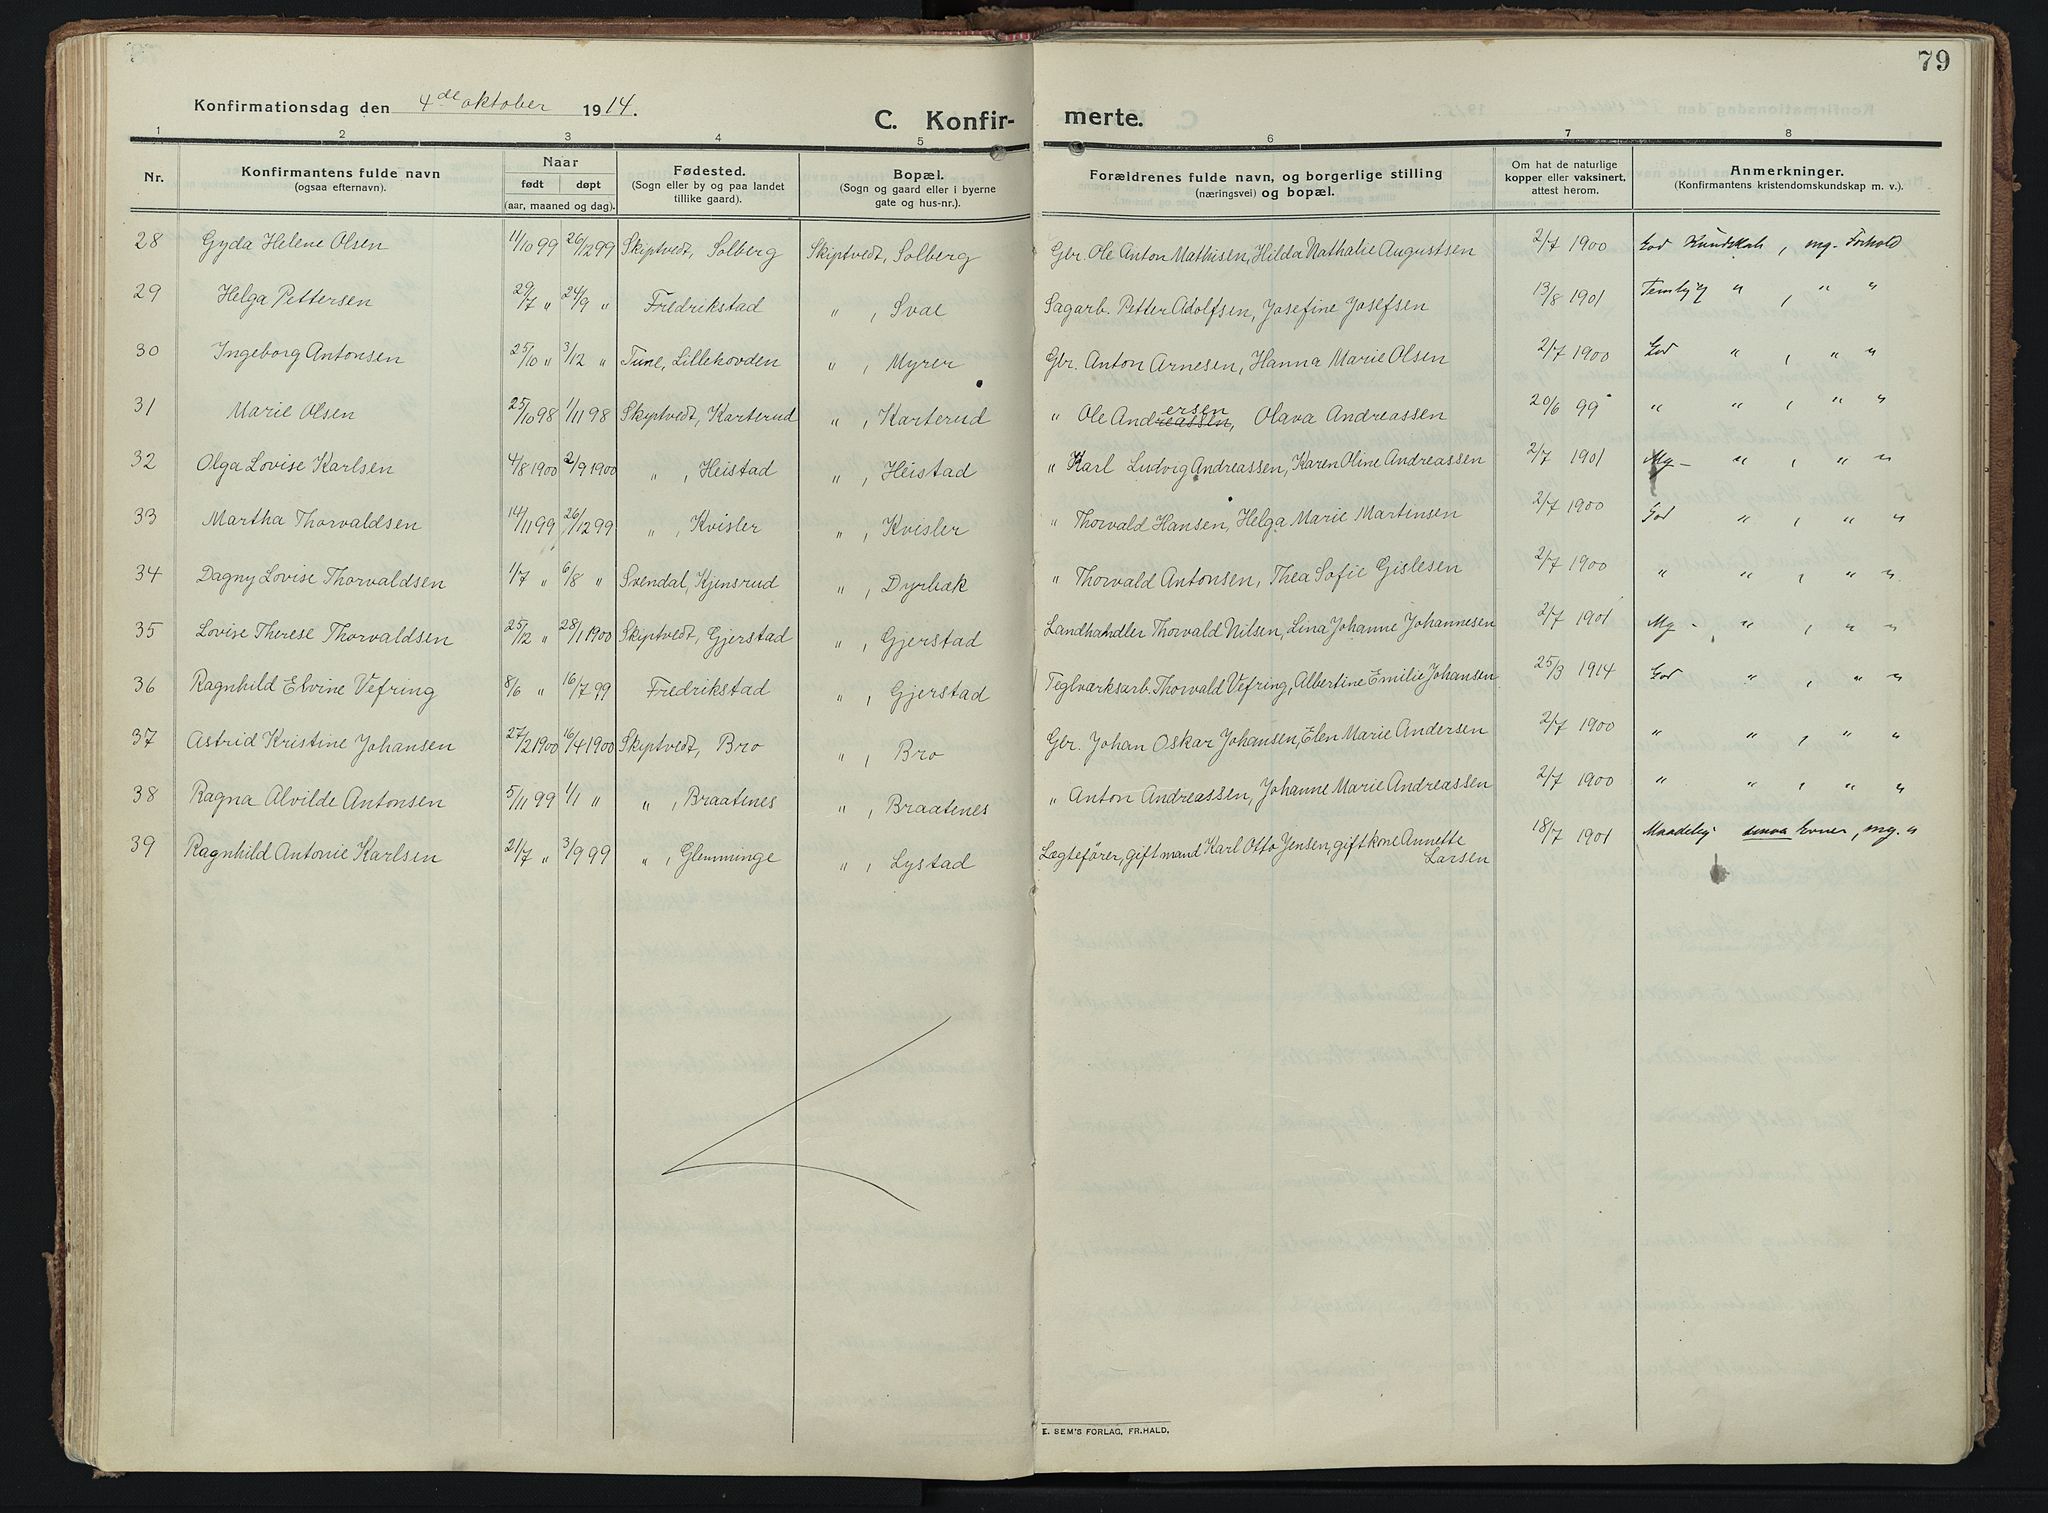 79
Konfirmationsdag den 4de oktober 1914.
C. Konfirmerte.
1 2 3 4 5 6 7 8
Nr.
Konfirmantens fulde navn
(ogsaa efternavn).
Naar
født døpt
(aar, maaned og dag).
Fødested.
(Sogn eller by og paa landet
tillike gaard).
Bopæl.
(Sogn og gaard eller i byerne
gate og hus-nr.).
Forældrenes fulde navn, og borgerlige stilling
(næringsvei) og bopæl.
Om hat de naturlige
kopper eller vaksinert,
attest herom.
Anmerkninger.
(Konfirmantens kristendomskundskap m. v.).
28 Gyda Helene Olsen 11/10 99 26/12 99 Skiptvedt, Solberg Skiptvedt, Solberg Gbr. Ole Anton Mathisen, Hilda Nathalie Augustsen 2/7 1900 God Kundskab, mg. Forhold
29 Helga Pettersen 29/7 " 24/9 " Fredrikstad " , Svae Sagarb. Petter Adolfsen, Josefine Josefsen 13/8 1901 Temlig " , " "
30 Ingeborg Antonsen 25/10 " 3/12 " Tune, Lillehovden " , Myrer Gbr. Anton Arnesen, Hanna Marie Olsen 2/7 1900 God " , " "
31 Marie Olsen 25/10 98 1/11 98 Skiptvedt, Karterud " , Karterud " Ole Andreassen ersen, Olava Andreassen 20/6 99 " " , " "
32 Olga Lovise Karlsen 4/8 1900 2/9 1900 " , Heistad " , Heistad " Karl Ludvig Andreassen, Karen Oline Andreassen 2/7 1901 Mg - " , " "
33 Martha Thorvaldsen 14/11 99 26/12 99 " , Kvisler " , Kvisler " Thorvald Hansen, Helga Marie Martensen 2/7 1900 God " , " "
34 Dagny Lovise Thorvaldsen 1/7 " 6/8 " Svendal, Kjensrud " , Dyrbæk " Thorvald Antonsen, Thea Sofie Gislesen 2/7 1900 " " , " "
35 Lovise Therese Thorvaldsen 25/12 " 28/1 1900 Skiptvedt, Gjerstad " , Gjerstad Landhandler Thorvald Nilsen, Lina Johanne Johannesen 2/7 1901 Mg - " , " "
36 Ragnhild Elvine Vefring 8/6 " 16/7 99 Fredrikstad " , Gjerstad Teglværksarb. Thorvald Vefring, Albertine Emilie Johansen 25/3 1914 God " , " "
37 Astrid Kristine Johansen 27/2 1900 16/4 1900 Skiptvedt, Bro " , Bro Gbr. Johan Oskar Johansen, Elen Marie Andersen 2/7 1900 " " , " "
38 Ragna Alvilde Antonsen 5/11 99 1/1 " " , Braatenes " , Braatenes " Anton Andreassen, Johanne Marie Andreassen 2/7 1900 " " , " "
39 Ragnhild Antonie Karlsen 21/7 " 3/9 99 " , Glemminge " , Lystad Lægtefører, gift mand Karl Otto Jensen, gift kone Annette Larsen 18/7 1901 Maadelig - smaa Evner, mg. "
E. SEM'S FORLAG, FR.HALD.